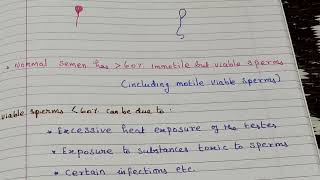 • Normal semen has > 60% immotile but viable sperms
(including motile viable sperms)
viable sperms < 60% can be due to :
* Excessive heat exposure of the testes
* Exposure to substances toxic to sperms
* Certain infections etc.